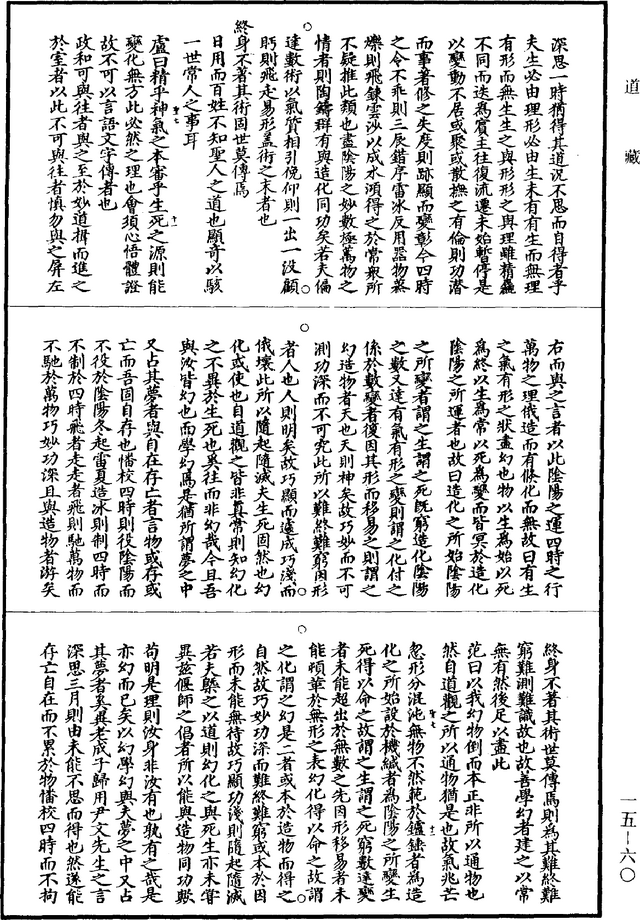 道藏
深思一時猶得其道况不思而自得者乎
夫生必由理形必由生未有有生而無理
有形而無生生之與形形之與理雖精麤
不同而迭為賓主往復流遷未始暫停是
以變動不居或聚或散撫之有倫則功潜
而事著修之失度則跡顯而變彰今四時
之令不乖則三辰錯序雷冰反用器物蒸
爍則飛鍊雲沙以成水澒得之於常衆所
不疑推此類也盡陰陽之妙數極萬物之
情者則陶鑄群有與造化同功矣若夫偏
達數術以氣質相引俛仰則一出一没顧
眄則飛走易形蓋術之末者也
終身不著其術固世莫傳焉
日用而百姓不知聖人之道也顯奇以駭
一世常人之事耳
盧曰精乎神氣之本審乎生死之源則能
變化無方此必然之理也會須心悟體證
故不可以言語文字傳者也
政和可與往者與之至於妙道揖而進之
於室者以此不可與往者慎勿與之屏左
右而與之言者以此陰陽之運四時之行
萬物之理俄造而有倏化而無故曰有生
之氣有形之狀盡幻也物以生為始以死
為終以生為常以死為變而皆冥於造化
陰陽之所運者也故曰造化之所始陰陽
之所變者謂之生謂之死既窮造化陰陽
之數又達有氣有形之變則謂之化付之
係於數變者復因其形而移易之則謂之
幻造物者天也天則神矣故巧妙而不可
測功深而不可究此所以難終難窮因形
者人也人則明矣故巧顯而遽成巧淺而
俄壞此所以隨起隨滅夫生死固然也幻
化或使也自道觀之皆非真常則知幻化
之不異於生死也奚往而非幻哉今且吾
與汝皆幻也而學幻焉是猶所謂夢之中
又占其夢者與自在存亡者言物或存或
亡而吾固自存也憣校四時則役陰陽而
不役於陰陽冬起雷夏造冰則制四時而
不制於四時飛者走走者飛則馳萬物而
不馳於萬物巧妙功深且與造物者游矣
終身不著其術世莫傳焉則為其難終難
窮難測難識故也故善學幻者建之以常
無有然後足以盡此
范曰以我幻物倒而本正非所以通物也
然自道觀之所以通物猶是也故氣兆芒
忽形分混沌無物不然範於鑪錘者為造
化之所始設於機緘者為陰陽之所變生
死得以命之故謂之生謂之死窮數達變
者未能超出於無數之先因形移易者未
能頓革於無形之表幻化得以命之故謂
之化謂之幻是二者或本於造物而得之
自然故巧妙功深而難終難窮或本於因
形而未能無待故巧顯功淺則隨起隨滅
若夫槩之以道則幻化之與死生亦未甞
異茲偃師之倡者所以能與造物同功歟
苟明是理則汝身非汝有也孰有之哉是
亦幻而已矣以幻學幻與夫夢之中又占
其夢者奚異老成子歸用尹文先生之言
深思三月則由未能不思而得也然遂能
存亡自在而不累於物憣校四時而不拘
一五—六〇